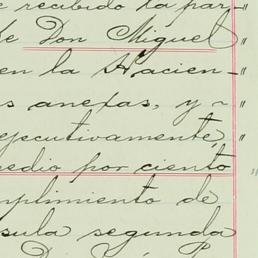 recibido la par-
de Don Miguel "
en la Hacien- "
s anexas, y ~ "
ejecutivamente, "
medio por ciento
mplimiento de
sula segunda